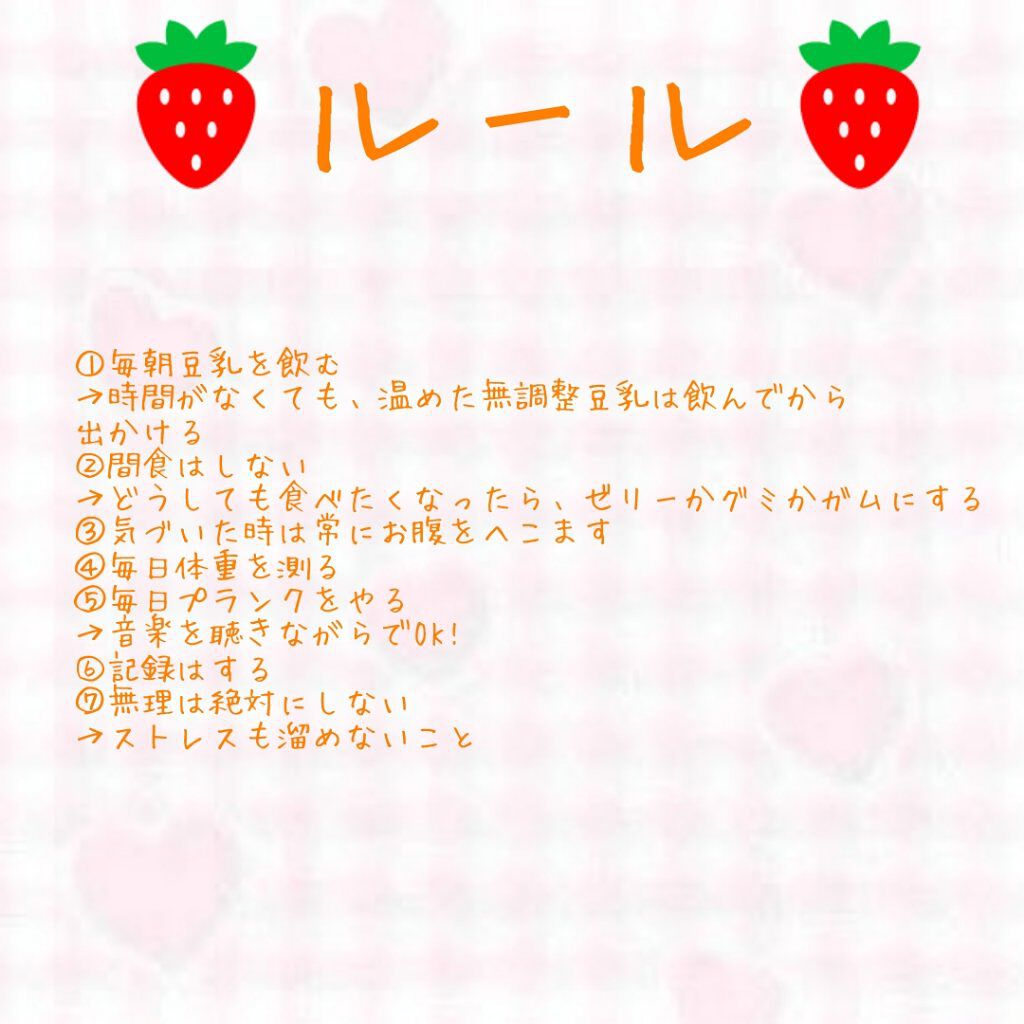 ルール
①毎朝豆乳を飲む
→時間がなくても、温めた無調整豆乳は飲んでから
出かける
②間食はしない
→どうしても食べたくなったら、ゼリーかグミかガムにする
③気づいた時は常にお腹をへこます
④毎日体重を測る
⑤毎日プランクをやる
→音楽を聴きながらでOk!
⑥記録はする
⑦無理は絶対にしない
→ストレスも溜めないこと